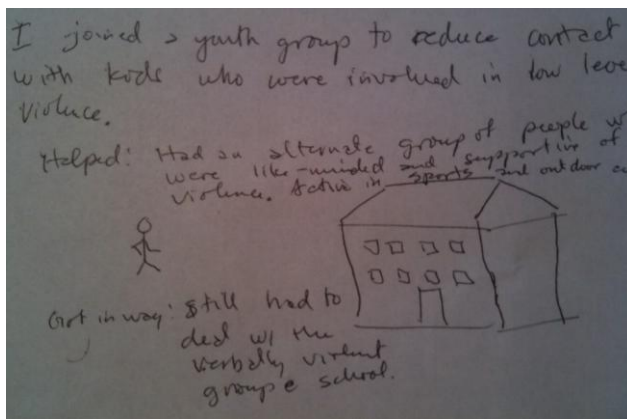 I joined a youth group to reduce contact
with kids who were involved in low leve
violence.
Helped: Had an alternate group of people w
were like-minded and supportive of
violence. Active in sports and outdoor
Got in way: Still had to
deal w/ the
verbally violent
group @ school.